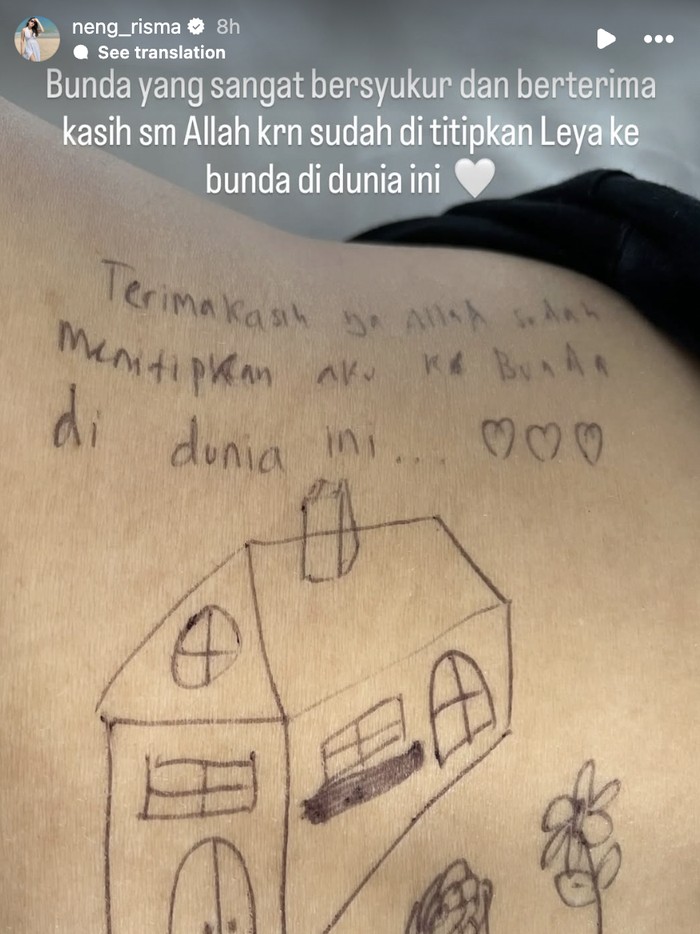 neng_risma 8h
See translation
Bunda yang sangat bersyukur dan berterima
kasih sm Allah krn sudah di titipkan Leya ke
bunda di dunia ini 🤍
Terimakasih ya Allah sudah
menitipkan aku ke Bunda
di dunia ini.... ♡♡♡